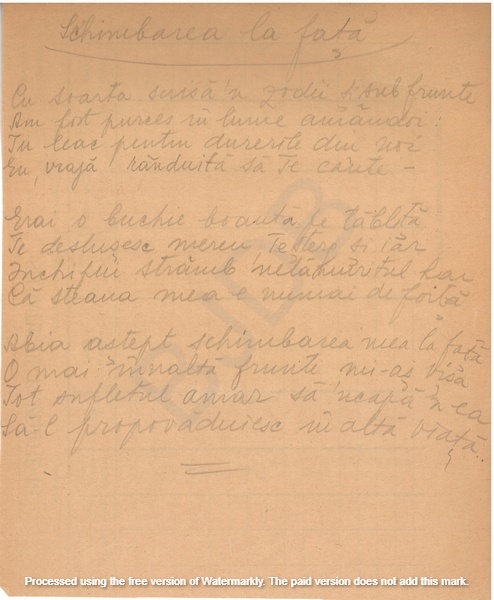 Schimbarea la față
Cu soarta scrisă'n zodii și sub frunte
Am fost purces în lume amândoi:
Tu leac pentru durerole din noi
Eu, vrajă rânduită să Te cânte –
Erai o buchie boantă pe tăbliță
Te deslușesc mereu Te șterg și iăr
Închipui strâmb 'nelămuritul har
Că steaua mea e numai de
Abia aștept schimbarea mea la față
O mai înnaltă frunte mi-aș visa
Tot sufletul amar să 'ncapă 'n ea
Să-l propovăduiesc în altă viață..
BJDB
Processed using the free version of Watermarkly. The paid version does not add this mark.